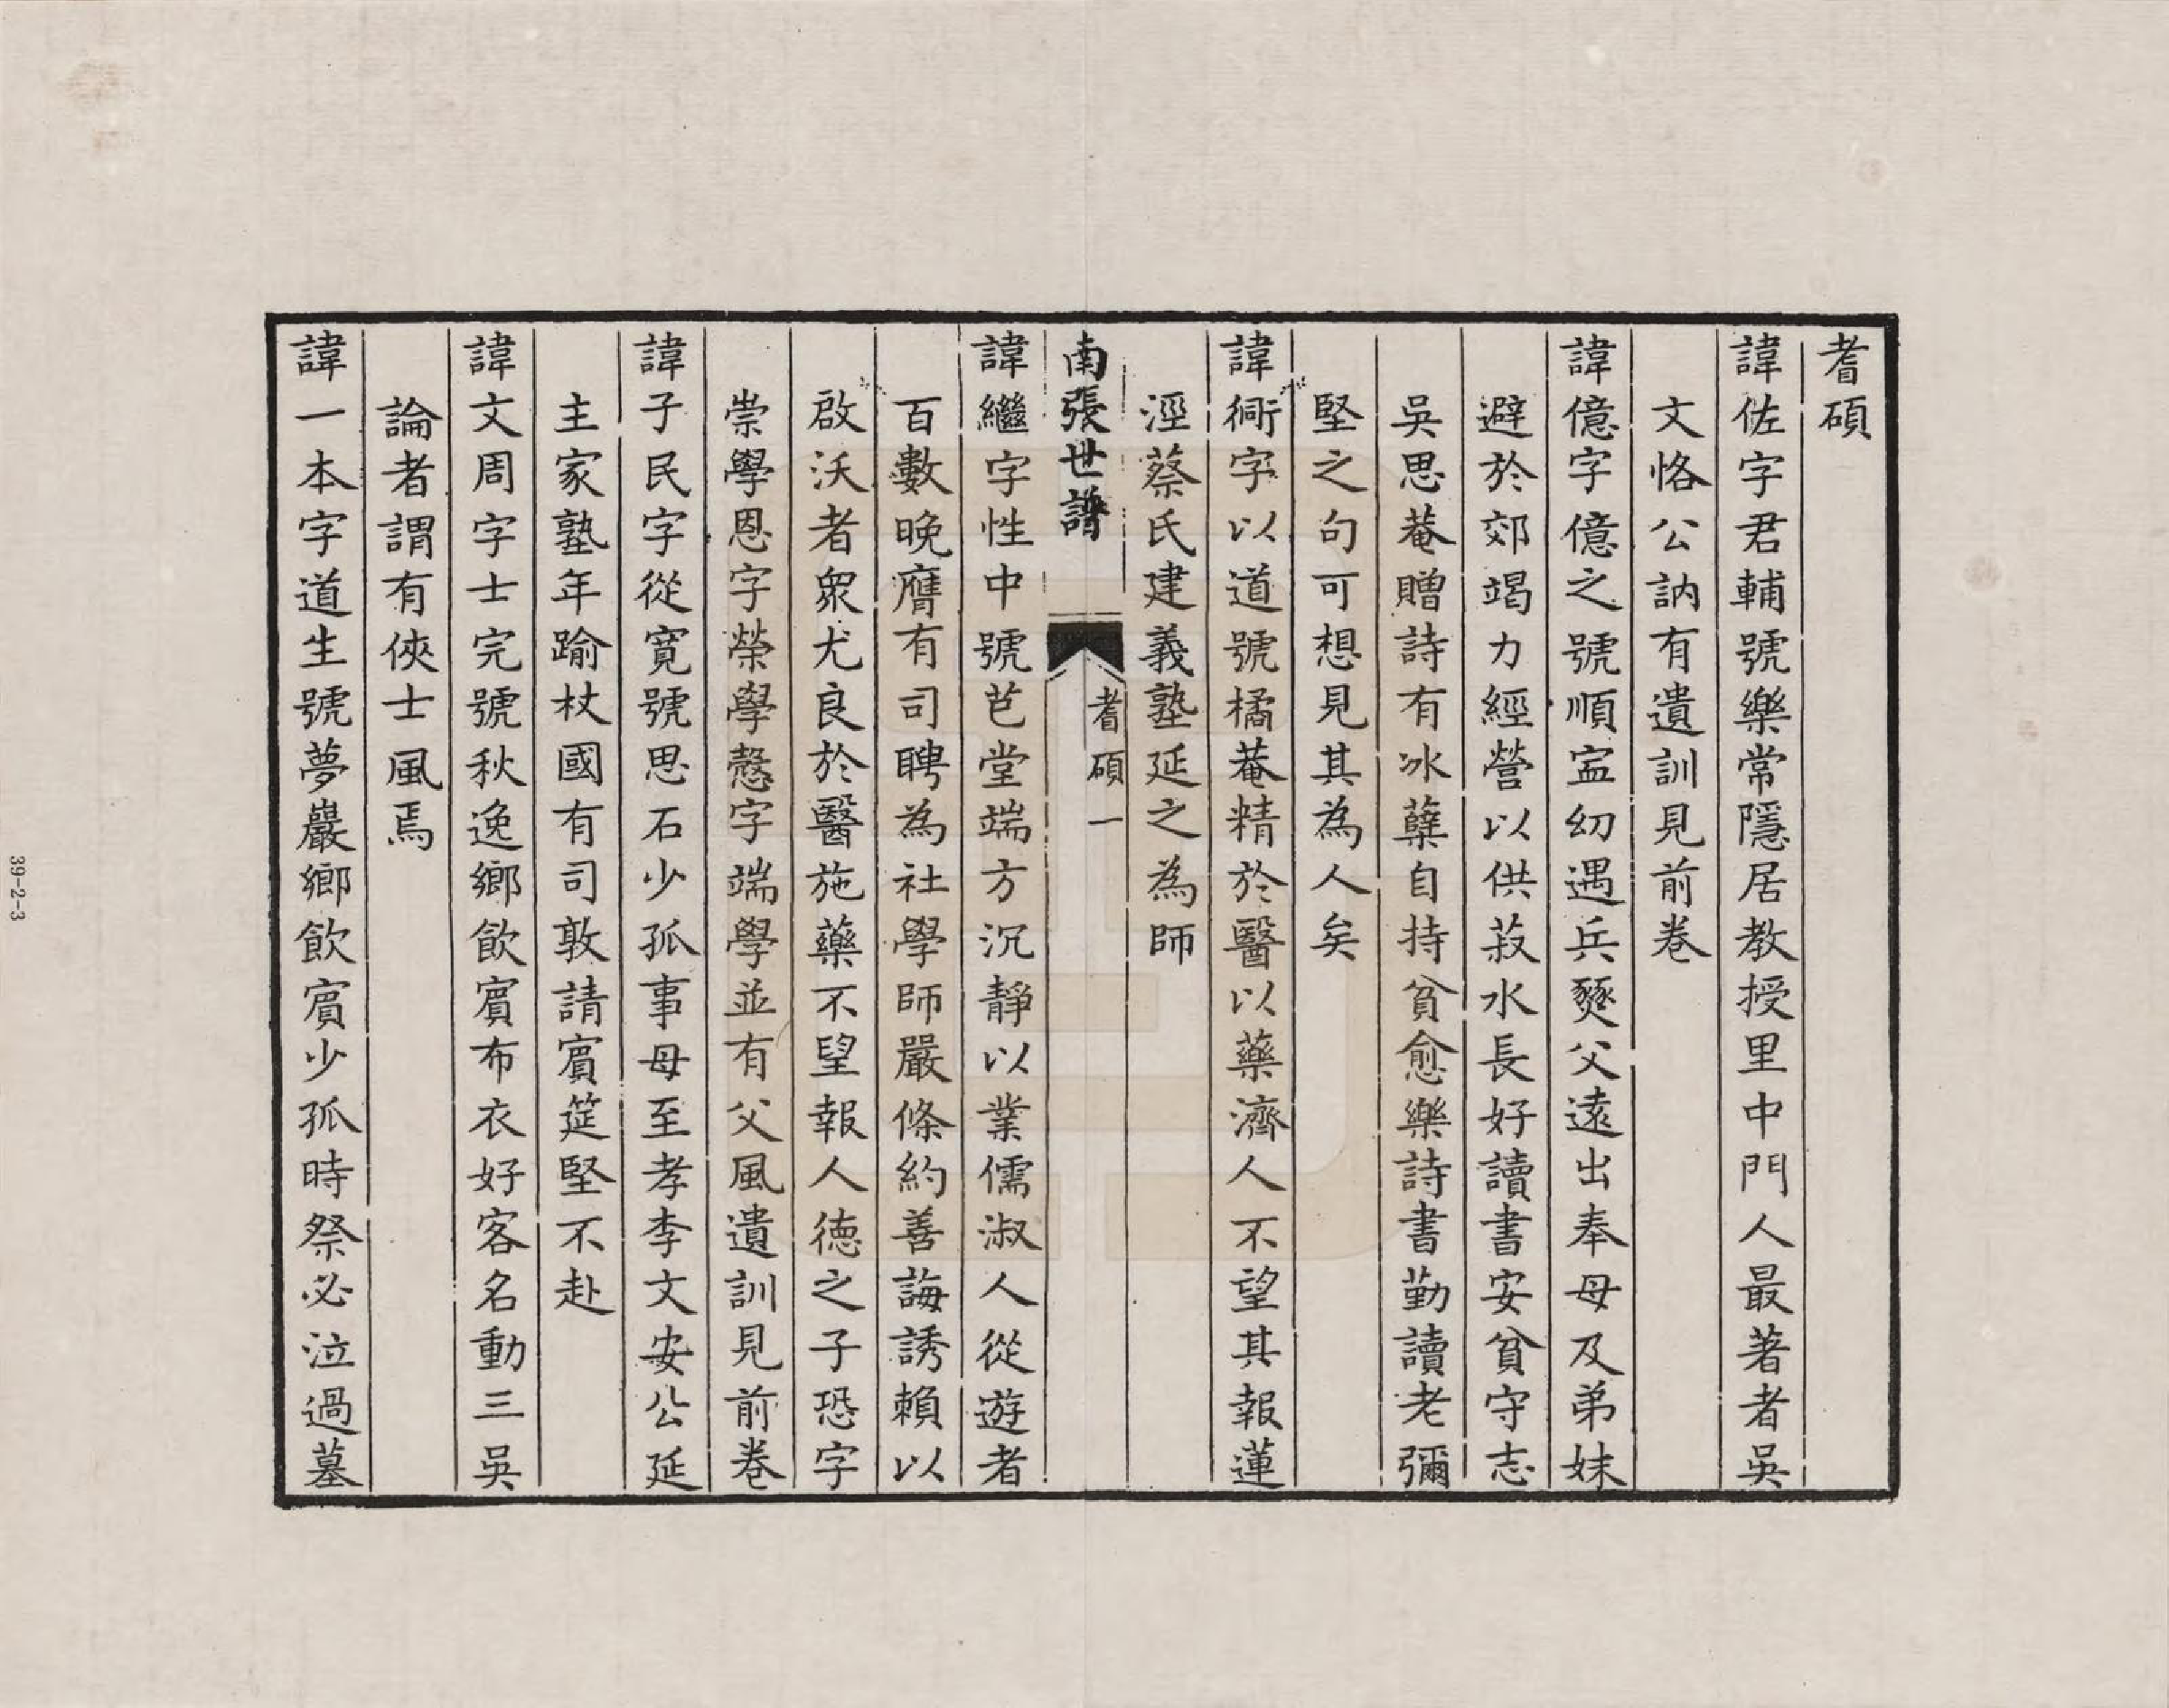 耆碩
諱佐字君輔號樂常隱居教授里中門人最著者吳
文恪公訥有遺訓見前卷
諱億字億之號順寍幼遇兵燹父遠出奉母及弟妹
避於郊竭力經營以供菽水長好讀書安貧守志
吳思菴贈詩有冰蘗自持貧愈樂詩書勤讀老彌
堅之句可想見其為人矣
諱衕字以道號橘菴精於醫以藥濟人不望其報蓮
涇蔡氏建義塾延之為師
南張世譜
耆碩
一
諱繼字性中號芑堂端方沉靜以業儒淑人從遊者
百數晚膺有司聘為社學師嚴條約善誨誘賴以
啟沃者眾尤良於醫施藥不望報人德之子恐字
崇學恩字榮學慤字端學並有父風遺訓見前卷
諱子民字從寬號思石少孤事母至孝李文安公延
主家塾年踰杖國有司敦請賓筵堅不赴
諱文周字士完號秋逸鄉飲賓布衣好客名動三吳
論者謂有俠士風焉
諱一本字道生號夢巖鄉飲賓少孤時祭必泣過墓
39-2-3